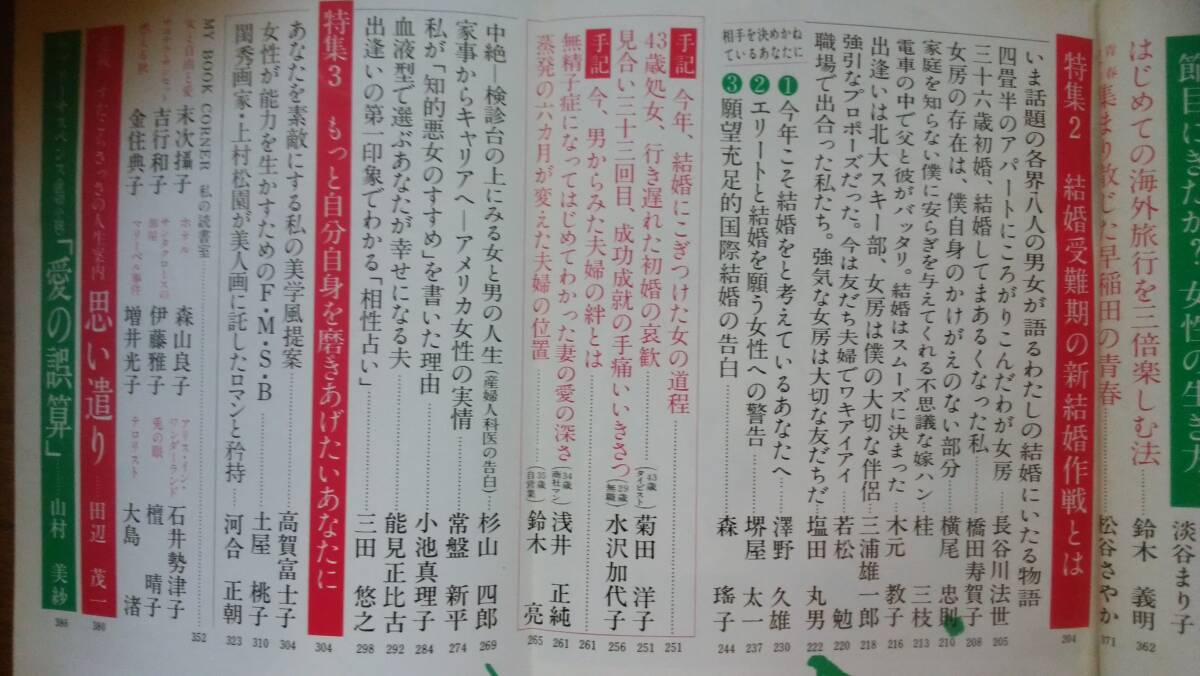 節目にきたか？女性の生き方
淡谷まり子
はじめての海外旅行を三倍楽しむ法 鈴木 義明 362
青春 集まり散じた早稲田の青春 松谷さやか 371
特集2 結婚受難期の新結婚作戦とは 204
いま話題の各界八人の男女が語るわたしの結婚にいたる物語
四畳半のアパートにころがりこんだわが女房 長谷川法世 205
三十六歳初婚、結婚してまあるくなった私 橋田寿賀子 208
女房の存在は、僕自身のかけがえのない部分 横尾 忠則 210
家庭を知らない僕に安らぎを与えてくれる不思議な嫁ハン 桂 三枝 213
電車の中で父と彼がバッタリ。結婚はスムーズに決まった 木元 教子 216
出逢いは北大スキー部、女房は僕の大切な伴侶 三浦雄一郎 218
強引なプロポーズだった。今は友だち夫婦でワキアイアイ 若松 勉 220
職場で出合った私たち。強気な女房は大切な友だちだ 塩田 丸男 222
相手を決めかねているあなたに
1 今年こそ結婚をと考えているあなたへ 澤野 久雄 230
2 エリートと結婚を願う女性への警告 堺屋 太一 237
3 願望充足的国際結婚の告白 森 瑤子 244
手記 今年、結婚にこぎつけた女の道程 251
43歳処女、行き遅れた初婚の哀歓 (43歳 タイピスト) 菊田 洋子 251
見合い三十三回目、成功成就の手痛いいきさつ (29歳 無職) 水沢加代子 256
手記 今、男からみた夫婦の絆とは 261
無精子症になってはじめてわかった妻の愛の深さ (34歳 商社マン) 浅井 正純 261
蒸発の六カ月が変えた夫婦の位置 (35歳 自営業) 鈴木 亮 265
中絶―検診台の上にみる女と男の人生(産婦人科医の告白) 杉山 四郎 269
家事からキャリアへ―アメリカ女性の実情 常盤 新平 274
私が「知的悪女のすすめ」を書いた理由 小池真理子 284
血液型で選ぶあなたが幸せになる夫 能見正比古 292
出逢いの第一印象でわかる「相性占い」 三田 悠之 298
特集3 もっと自分自身を磨きあげたいあなたに 304
あなたを素敵にする私の美学風提案 高賀富士子 304
女性が能力を生かすためのF・M・S・B 土屋 桃子 310
閨秀画家・上村松園が美人画に託したロマンと矜持 河合 正朝 323
MY BOOK CORNER 私の読書室 352
末次攝子 ホテル 森山良子 アリス・イン・ワンダーランド 石井勢津子
吉行和子 サンタクロースの部屋 伊藤雅子 兎の眼 檀 晴子
金住典子 マリーベル事件 増井光子 テロリスト 大島 渚
すたこらさっさの人生案内 思い遣り 田辺 茂一 380
サスペンス 「愛の誤算」 山村 美紗 386